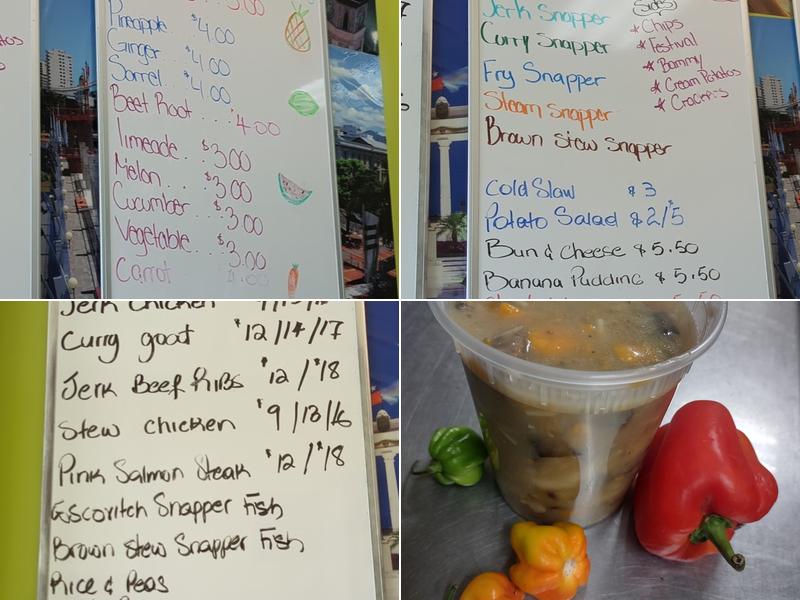 Pineapple $4.00
Ginger $4.00
Sorrel $4.00
Beet Root $4.00
limeade. $3.00
Melon... $3.00
Cucumber $3.00
Vegetable... $3.00
Carrot
Jerk Snapper
Curry Snapper
Fry Snapper
Steam Snapper
Brown Stew Snapper
Sides
* Chips
* Festival
* Bammy
* Cream Potatos
* Crackers
Cold Slaw $3
Potato Salad $2/5
Bun & Cheese $5.50
Banana Pudding $5.50
Jerk Chicken
Curry goat $12/14/17
Jerk Beef Ribs $12/$18
Stew chicken $9/13/16
Pink Salmon Steak $12/$18
Escovitch Snapper Fish
Brown Stew Snapper Fish
Rice & Peas